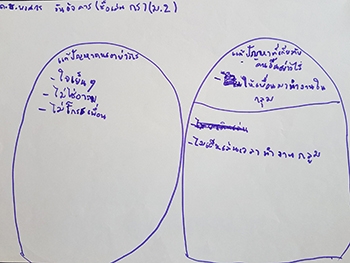 ด.ช. วันอังคาร (ชื่อเล่น กร) (ม.2)
แก้ปัญหาตนเองอย่างไร
- ใจเย็นๆ
- ไม่ใช้อารมณ์
- ไม่โกรธเพื่อน
แก้ปัญหาที่เกี่ยวกับ
คนอื่นอย่างไร
ให้เพื่อนมาทำงานใน
กลุ่ม
- ไม่เล่นเวลาทำงานกลุ่ม